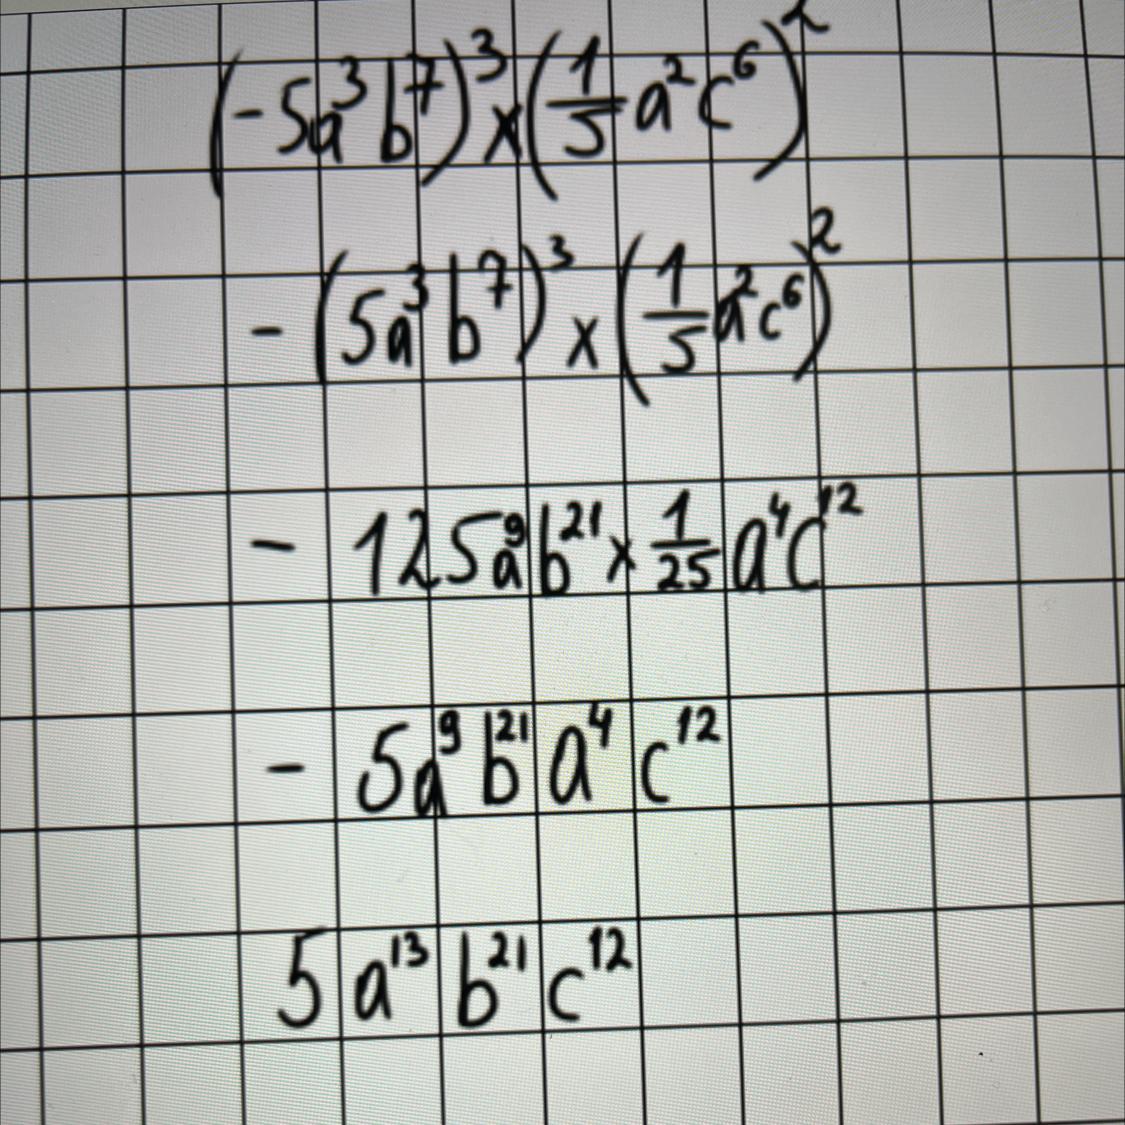 (-5a³b⁷)³×(1/5 a²c⁶)²
-(5a³b⁷)³×(1/5 a²c⁶)²
-125a⁹b²¹×1/25 a⁴c¹²
-5a⁹b²¹a⁴c¹²
5a¹³b²¹c¹²